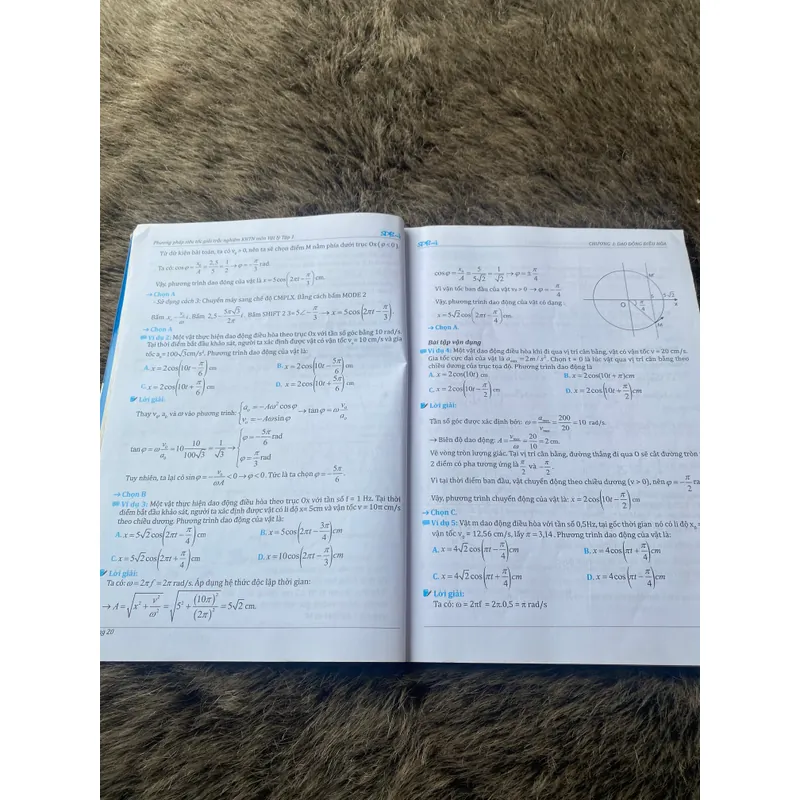 Phương pháp siêu tốc giải trắc nghiệm KHTN môn Vật lý Tập 1
Từ dữ kiện bài toán, ta có v₀ > 0, nên ta sẽ chọn điểm M nằm phía dưới trục Ox (φ < 0).
Ta có: cosφ = x₀/A = 2,5/5 = 1/2 → φ = -π/3 rad.
Vậy, phương trình dao động của vật là x = 5cos(2πt - π/3) cm.
→ Chọn A
- Sử dụng cách 3: Chuyển máy sang chế độ CMPLX. Bằng cách bấm MODE 2
Bấm x₀ - v₀/ω i. Bấm 2,5 - 5π√3/2π i. Bấm SHIFT 2 3 = 5∠ - π/3 → x = 5cos(2πt - π/3).
→ Chọn A
Ví dụ 2: Một vật thực hiện dao động điều hòa theo trục Ox với tần số góc bằng 10 rad/s.
Tại thời điểm bắt đầu khảo sát, người ta xác định được vật có vận tốc v₀ = 10 cm/s và gia
tốc a₀ = 100√3 cm/s². Phương trình dao động của vật là:
A. x = 2cos(10t - π/6) cm B. x = 2cos(10t - 5π/6) cm
C. x = 2cos(10t + π/6) cm D. x = 2cos(10t + 5π/6) cm
Lời giải:
Thay v₀, a₀ và ω vào phương trình: {a₀ = -Aω² cosφ; v₀ = -Aω sinφ → tanφ = ω v₀/a₀
tanφ = ω v₀/a₀ = 10 10/100√3 = 1/√3 → [φ = -5π/6 rad; φ = π/3 rad
Tuy nhiên, ta lại có sinφ = -v₀/ωA < 0 → φ < 0. Tức là ta chọn φ = -5π/6.
→ Chọn B
Ví dụ 3: Một vật thực hiện dao động điều hòa theo trục Ox với tần số f = 1 Hz. Tại thời
điểm bắt đầu khảo sát, người ta xác định được vật có li độ x= 5cm và vận tốc v = 10π cm/s
theo chiều dương. Phương trình dao động của vật là:
A. x = 5√2cos(2πt - π/4) cm B. x = 5cos(2πt - 3π/4) cm
C. x = 5√2cos(2πt + π/4) cm D. x = 10cos(2πt - π/3) cm
Lời giải:
Ta có: ω = 2πf = 2π rad/s. Áp dụng hệ thức độc lập thời gian:
→ A = √(x² + v²/ω²) = √(5² + (10π)²/(2π)²) = 5√2 cm.
ng 20
CHƯƠNG 1: DAO ĐỘNG ĐIỀU HÒA
cosφ = x₀/A = 5/5√2 = 1/√2 → φ = ± π/4
Vì vận tốc ban đầu của vật v₀ > 0 → φ = -π/4
Vậy, phương trình dao động của vật có dạng :
x = 5√2 cos(2πt - π/4) cm.
→ Chọn A.
M'
O
π/4
5
5√2
x
M
Bài tập vận dụng
Ví dụ 4: Một vật dao động điều hòa khi đi qua vị trí cân bằng, vật có vận tốc v = 20 cm/s.
Gia tốc cực đại của vật là aₘₐₓ = 2m / s². Chọn t = 0 là lúc vật qua vị trí cân bằng theo
chiều dương của trục tọa độ. Phương trình dao động là
A. x = 2cos(10t) cm B. x = 2cos(10t + π)cm
C. x = 2cos(10t - π/2) cm D. x = 2cos(10t + π/2) cm
Lời giải:
Tần số góc được xác định bởi: ω = aₘₐₓ/vₘₐₓ = 200/20 = 10 rad/s
→ Biên độ dao động: A = vₘₐₓ/ω = 20/10 = 2 cm.
Vẽ vòng tròn lượng giác. Tại vị trí cân bằng, đường thẳng đi qua O sẽ cắt đường tròn
2 điểm có pha tương ứng là π/2 và -π/2.
Vì tại thời điểm ban đầu, vật chuyển động theo chiều dương (v > 0), nên φ = -π/2 ra
Vậy, phương trình chuyển động của vật là: x = 2cos(10t - π/2) cm
→ Chọn C.
Ví dụ 5: Vật m dao động điều hòa với tần số 0,5Hz, tại gốc thời gian nó có li độ x₀
vận tốc v₀ = 12,56 cm/s, lấy π = 3,14. Phương trình dao động của vật là:
A. x = 4√2 cos(πt - π/4) cm B. x = 4cos(πt + π/4) cm
C. x = 4√2 cos(πt + π/4) cm D. x = 4cos(πt - π/4) cm
Lời giải:
Ta có: ω = 2πf = 2π.0,5 = π rad/s